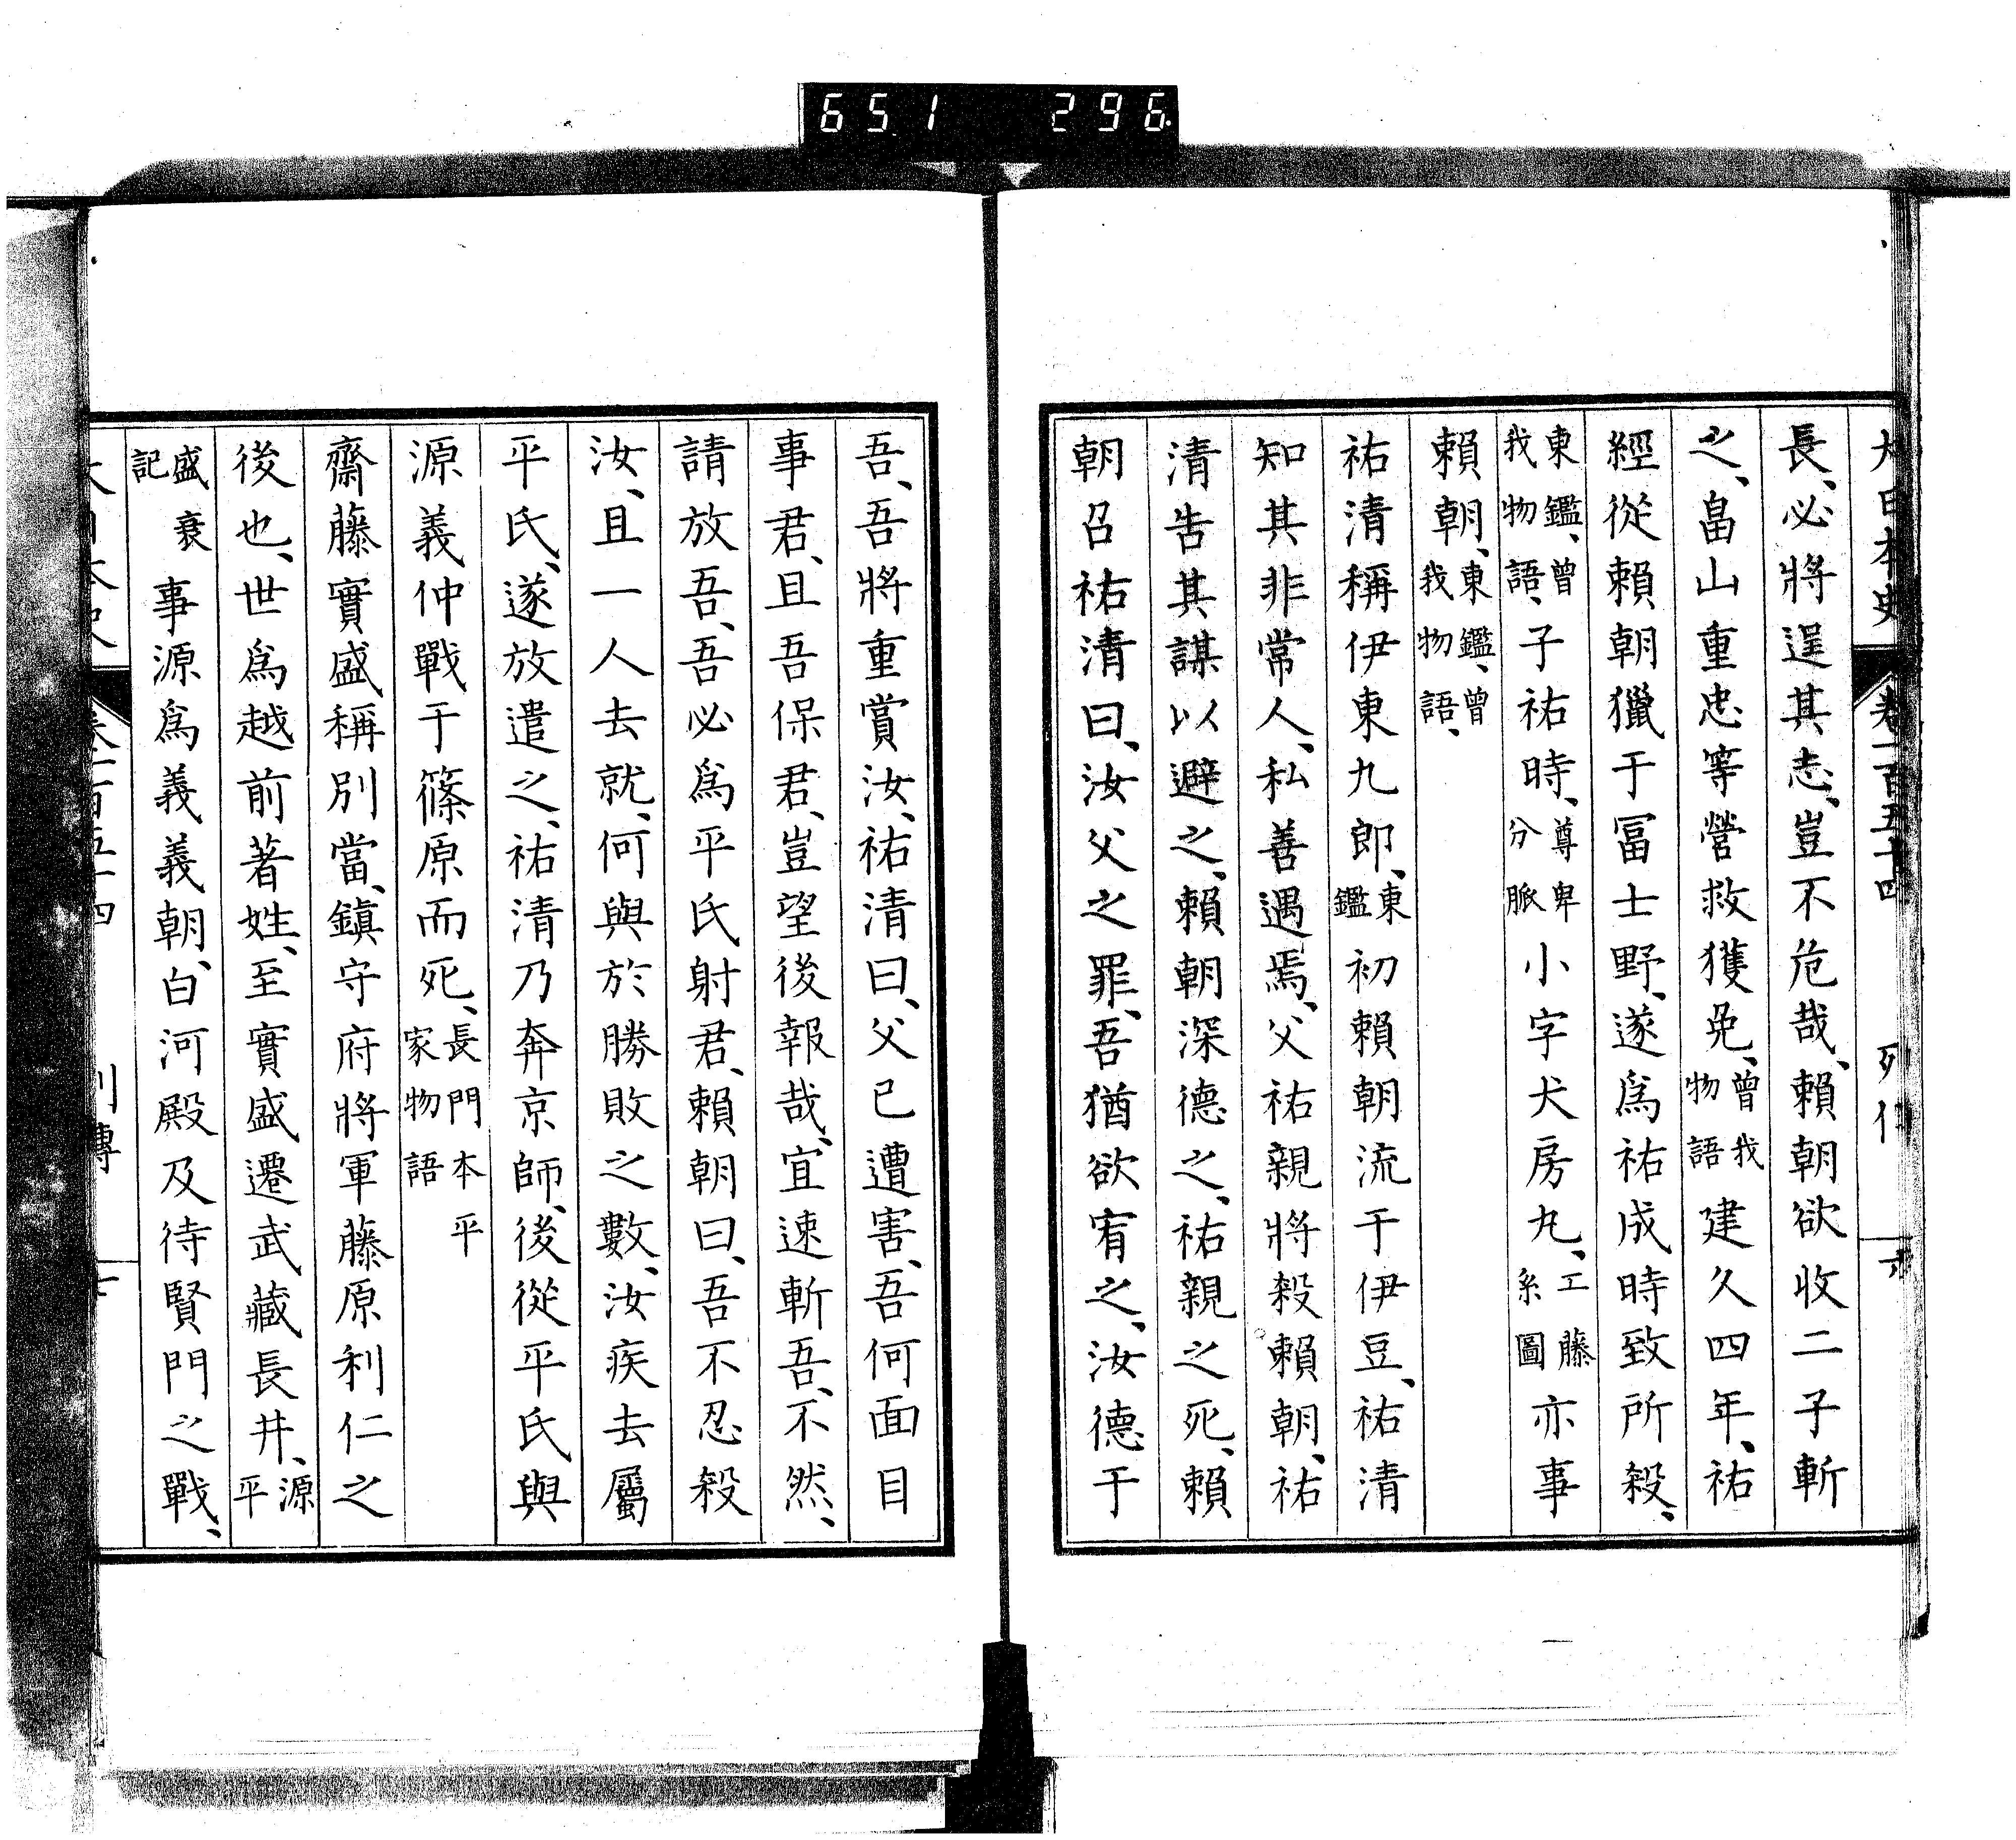 651 296
大日本史 卷一百五十四 列傳 六
長、必將逞其志、豈不危哉、賴朝欲收二子斬
之、畠山重忠等營救獲免、曾我物語建久四年、祐
經從賴朝獵于冨士野、遂爲祐成時致所殺、
東鑑、曾我物語、子祐時、尊卑分脈小字犬房丸、工藤系圖亦事
賴朝、東鑑、曾我物語、
祐清稱伊東九郎、東鑑初賴朝流于伊豆、祐清
知其非常人、私善遇焉、父祐親將殺賴朝、祐
清告其謀以避之、賴朝深德之、祐親之死、賴
朝召祐清曰、汝父之罪、吾猶欲宥之、汝德于
吾、吾將重賞汝、祐清曰、父已遭害、吾何面目
事君、且吾保君、豈望後報哉、宜速斬吾、不然、
請放吾、吾必爲平氏射君、賴朝曰、吾不忍殺
汝、且一人去就、何與於勝敗之數、汝疾去屬
平氏、遂放遣之、祐清乃奔京師、後從平氏與
源義仲戰于篠原而死、長門本平家物語
齋藤實盛稱別當、鎮守府將軍藤原利仁之
後也、世爲越前著姓、至實盛遷武藏長井、源平
盛衰記事源爲義義朝、白河殿及待賢門之戰、